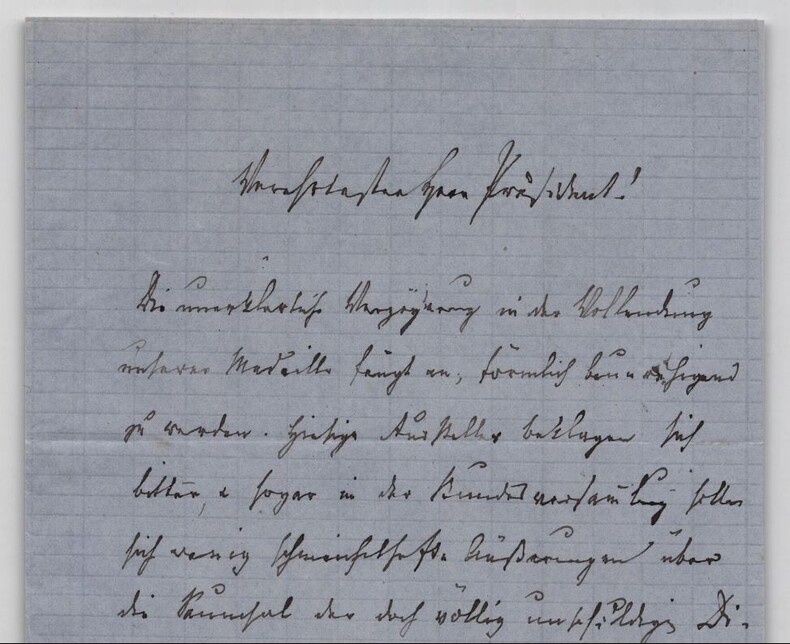 Verehrtester Herr Präsident!
Die unerklärliche Verzögerung in der Vollendung
unserer Medaille fängt an, förmlich beunruhigend
zu werden. Hiesige Aussteller beklagen sich
bitter, & sogar in der Bundesversammlung sollen
sich wenig schmeichelhafte Äußerungen über
die Saumsal der doch völlig unschuldigen Di-